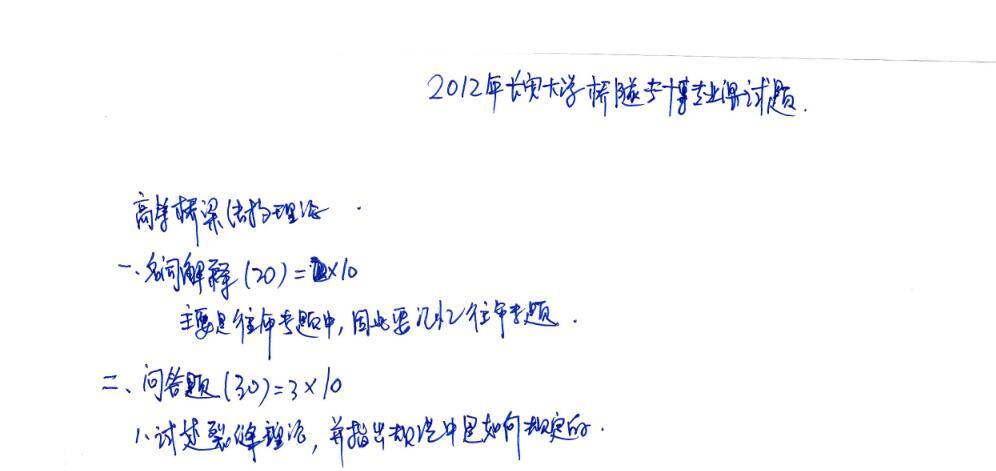 2012年长安大学桥隧考博专业课试题.
高等桥梁结构理论.
一、名词解释(20)=2×10
主要是往年考题中,因此要记忆往年考题.
二、问答题(30)=3×10
1、试述裂缝理论,并指出规范中是如何规定的.